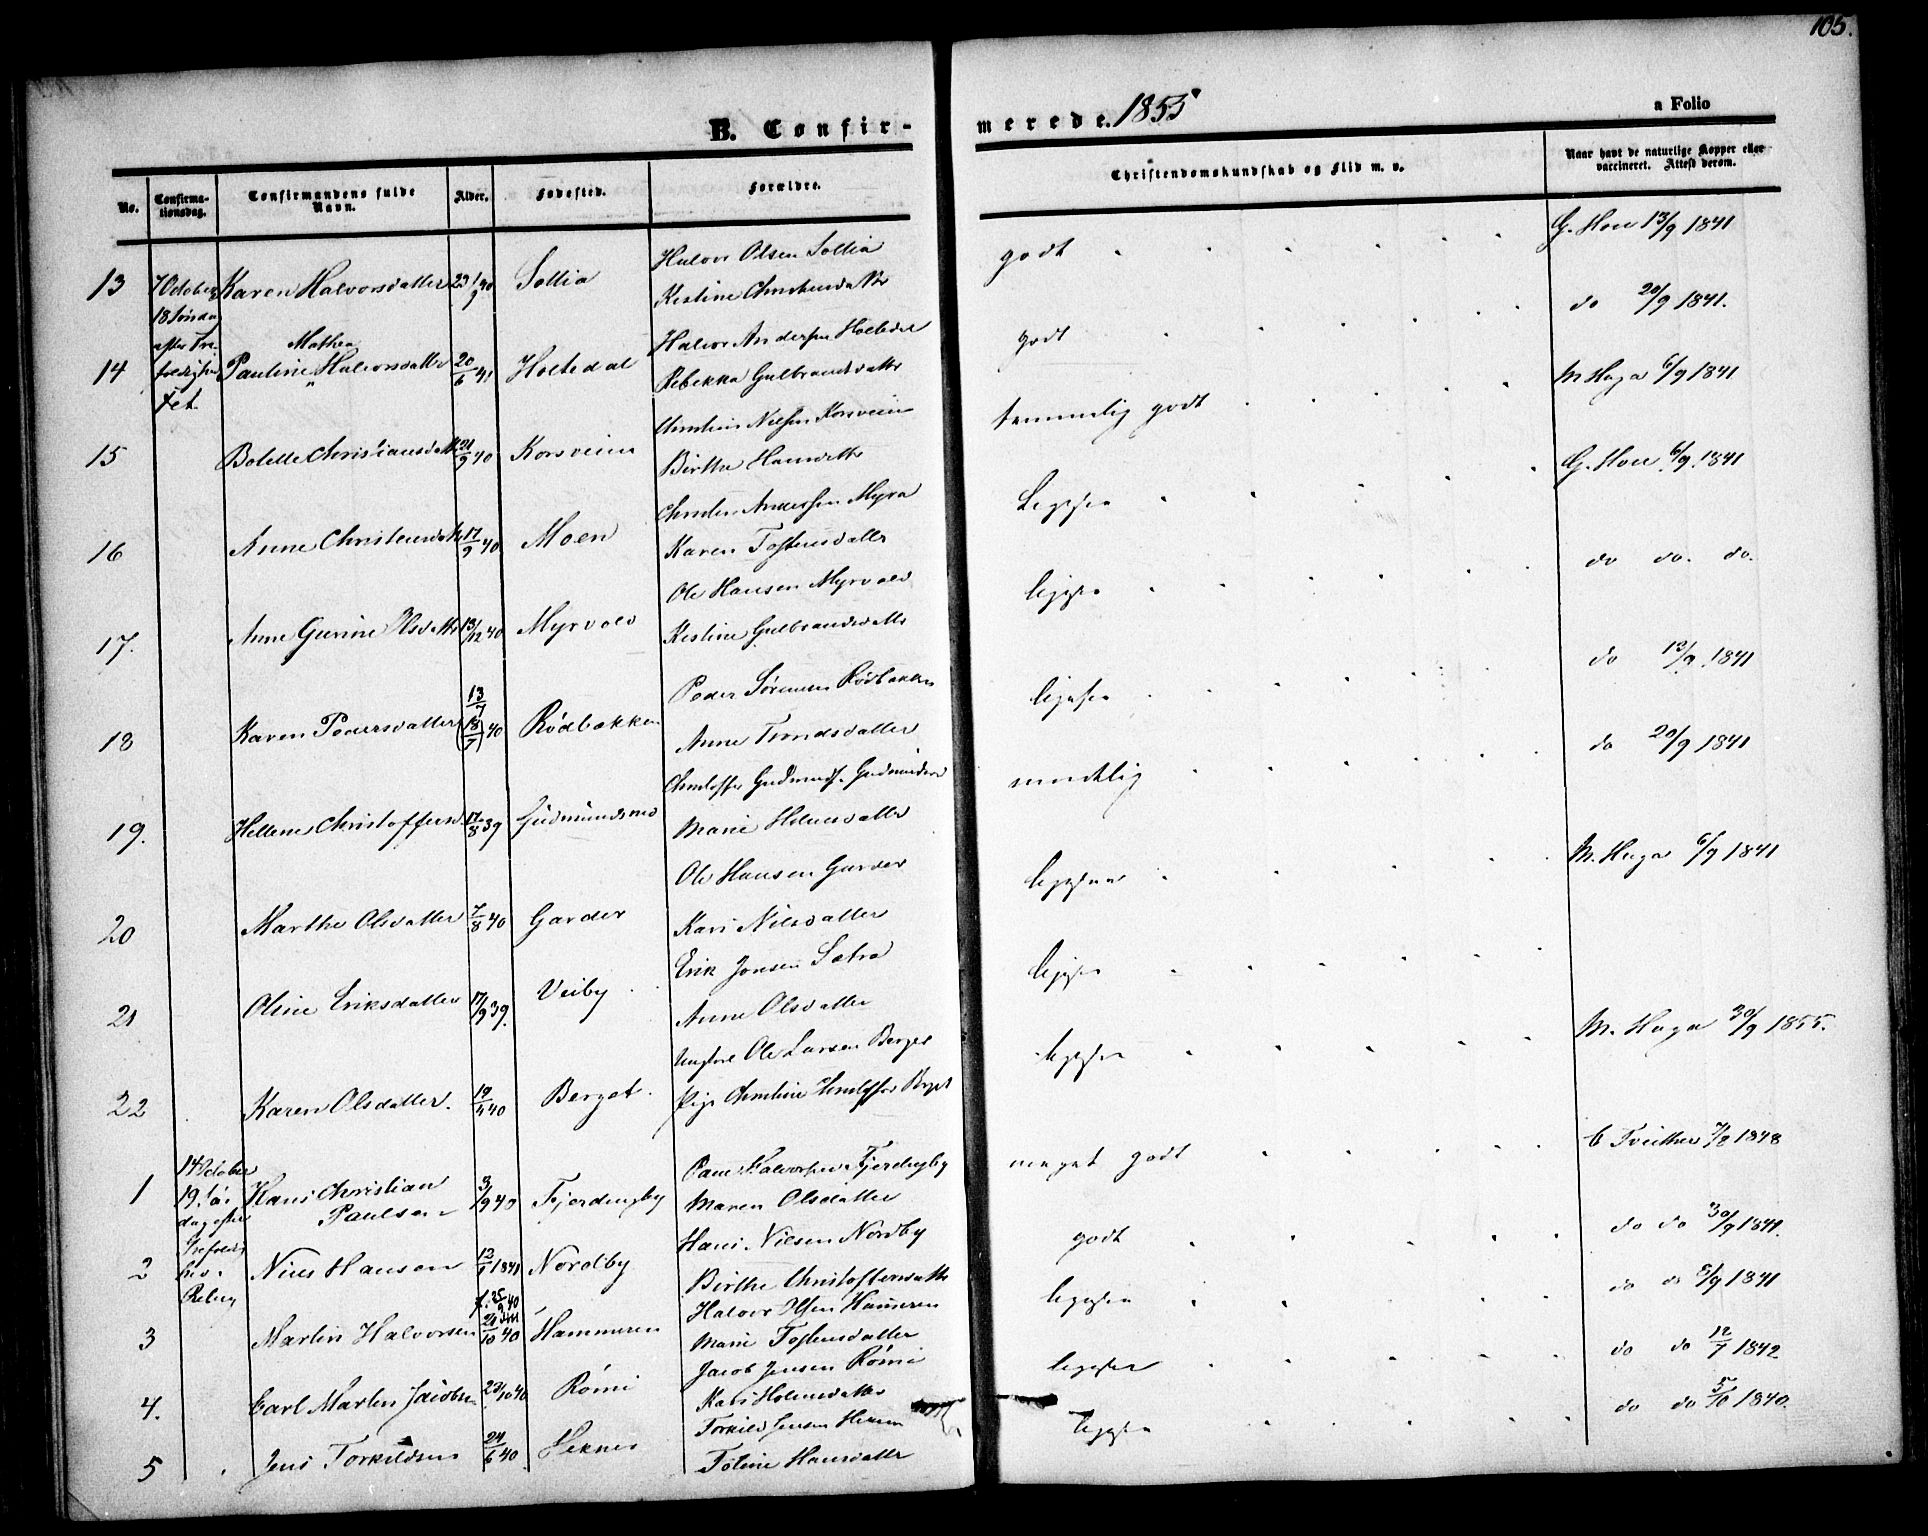 105.
B. Confir-
merede. 1855
a Folio
No.
Confirma-
tionsdag.
Confirmandens fulde
Navn.
Alder.
Fødested.
Forældre.
Christendomskundskab og Flid m. v.
Naar havt de naturlige Kopper eller
vaccineret. Attest derom.
Halvor Olsen Sollia
13 7 October Karen Halvorsdatter 23/9 40 Sollia Kestine Christensdatter godt G. Hou 13/9 1841
18 Søndag
efter Tre-
Mathea Halvor Andersen Holtedal
14 foldighed Pauline Halvorsdatter 20/6 41 Holtedal Rebekka Gulbrandsdatter godt do 20/9 1841.
Fet.
Christian Nielsen Korsveien
15 Bolette Christiansdatter 21/9 40 Korsveien Birthe Hansdatter temmelig godt M Haga 6/9 1841
Christen Andersen Myra
16 Anne Christensdatter 17/9 40 Moen Karen Tostensdatter Ligesaa G. Hou 6/9 1841
Ole Hansen Myrvold
17. Anne Gurine Olsdatter 13/12 40 Myrvold Kestine Gulbrandsdatter ligesaa do do. do.
Peder Sørensen Rødbakken
18 Karen Pedersdatter 13/7 (18/7) 40 Rødbakken Anne Trondsdatter ligesaa do 13/9 1841
Christoffer Gudmunds. Gudmundsrud
19. Hellene Christoffersd 17/8 39 Gudmundsrud Marie Helmesdatter maadelig do 20/9 1841
Ole Hansen Garder
20 Marthe Olsdatter 7/8 40 Garder Kari Nilsdatter ligesaa M. Haga 6/9 1841
Erik Jonsen Sætra
21 Oline Eriksdatter 17/9 39. Veiby Anne Olsdatter ligesaa
Ungkarl Ole Larsen Berget
22 Karen Olsdatter. 19/4 40 Berget. Pige Christine Christoffersd Berget ligesaa M. Haga 30/9 1855.
14 October
1 19. Søn- Hans Christian Paulsen 3/9 40 Fjerdingby Paul Halvorsen Fjerdingby meget godt C Tveither 7/8 1848
dag efter Maren Olsdatter
Trefoldig
Hans Nilsen Nordby
2 hed. Nils Hansen 12/1 1841 Nordby Birthe Christoffersdatter godt do do 30/9 1841.
Reling
f. 25/9 40
Halvor Olsen Hammeren
3 Martin Halvorsen 21/10 40 Hammeren Marie Tostensdatter ligesaa do do 8/9 1841
Jacob Jensen Römi
4. Carl Martin Jacobsen 23/10 40 Römi Kari Helmesdatter ligesaa do do 12/7 1842
Torkild Jensen
5 Jens Torkildsen 24/6 40 Heknes Toline Hansdatter ligesaa do do 5/10 1840.